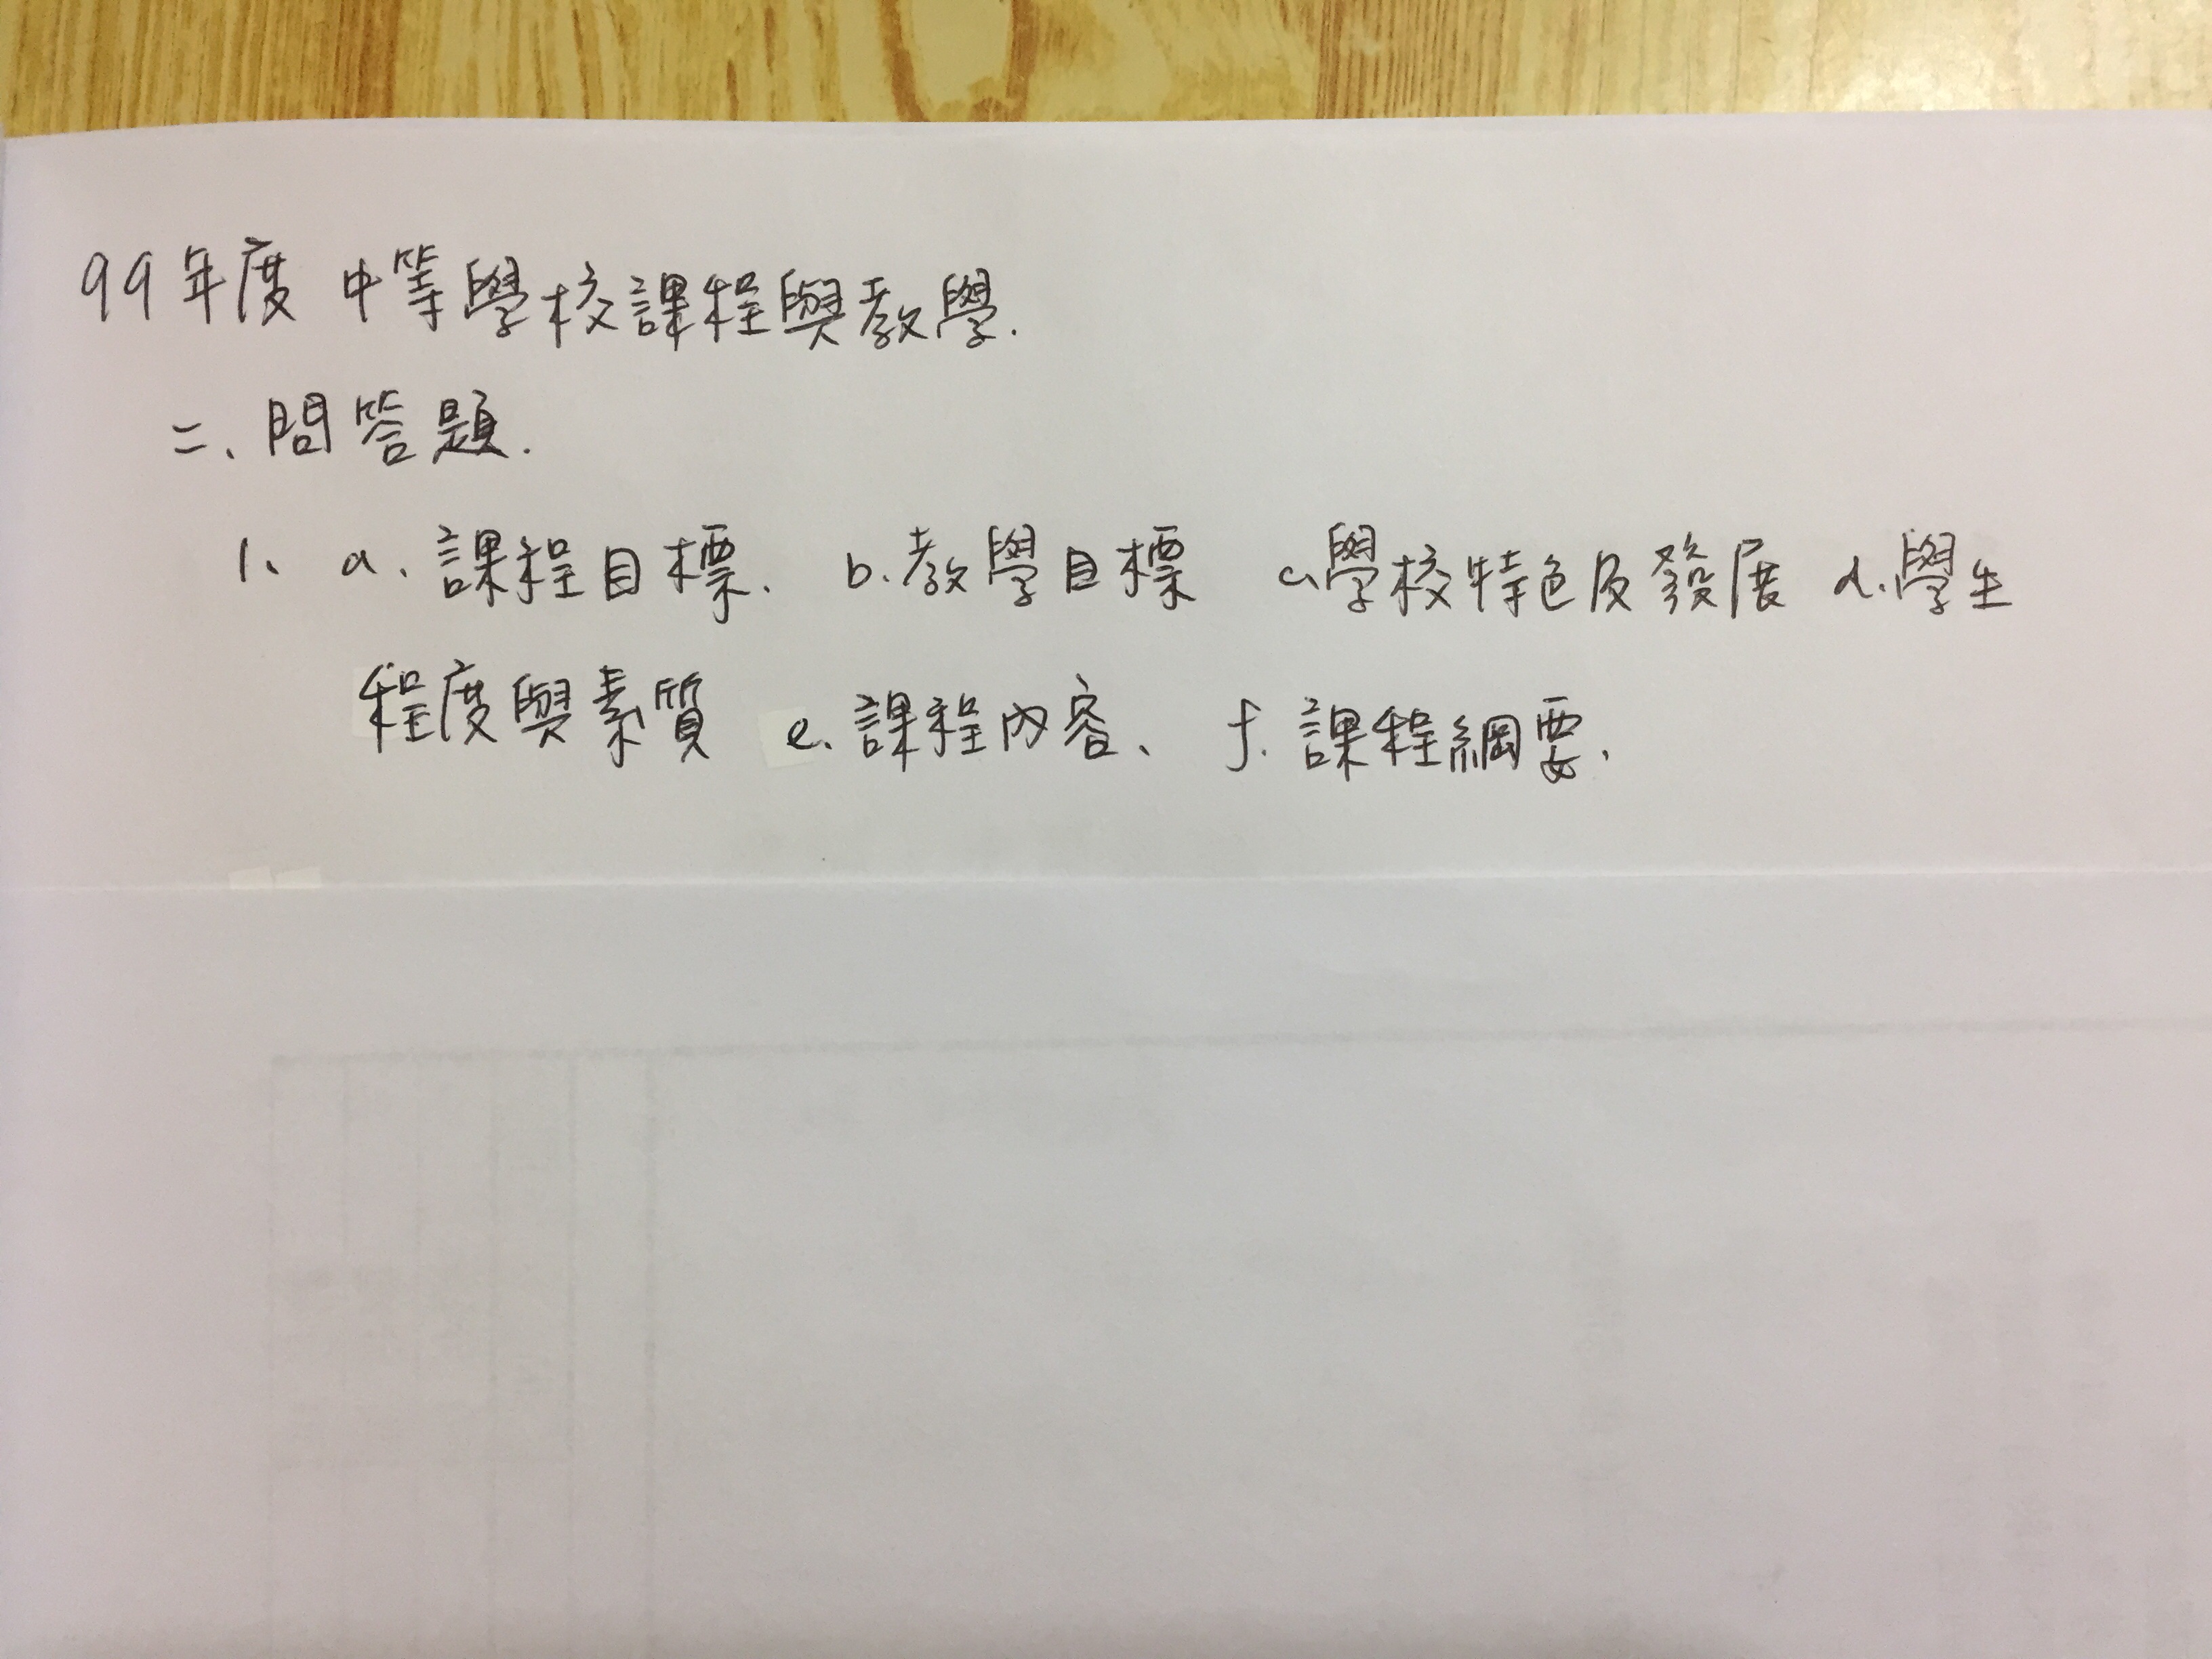 99年度 中等學校課程與教學.
二、問答題.
1、 a、課程目標、 b.教學目標 c.學校特色及發展 d.學生
程度與素質 e、課程內容、 f. 課程綱要、